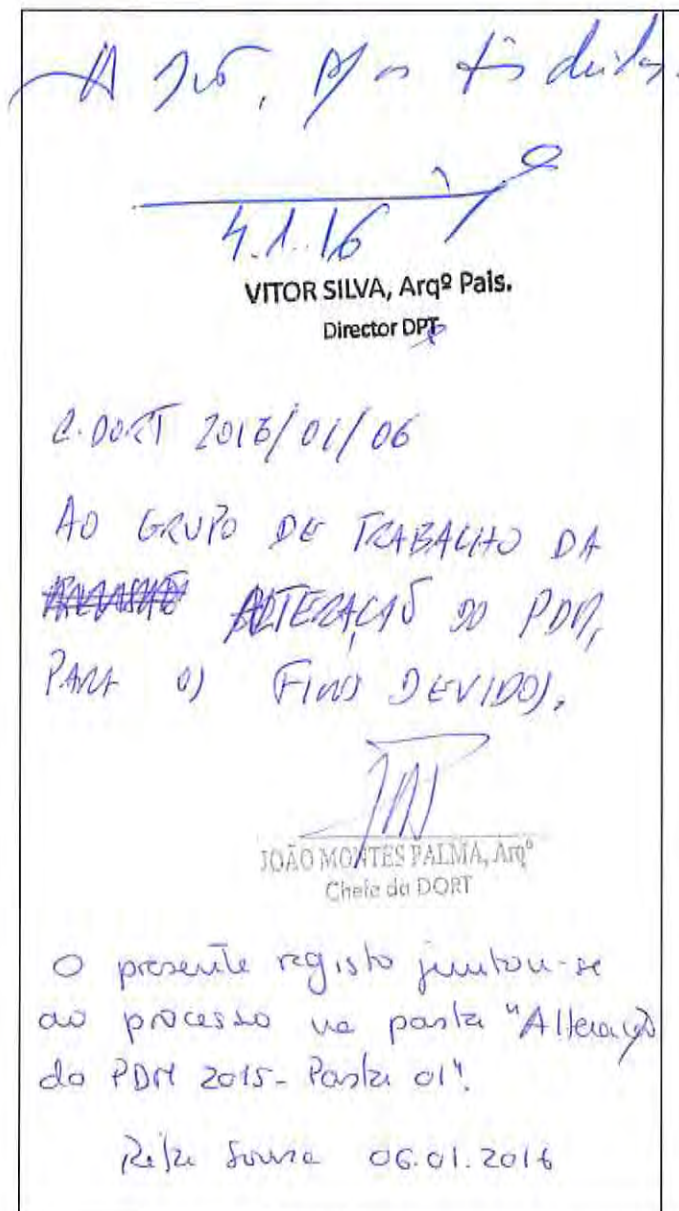 4.1.16
VITOR SILVA, Arqº Pais.
Director DPT
C.DORT 2016/01/06
AO GRUPO DE TRABALHO DA
ALTERAÇÃO DO PDM,
PARA OS FINS DEVIDOS.
JOÃO MONTES PALMA, Arqº
Chefe da DORT
O presente registo juntou-se
ao processo na pasta "Alteração
do PDM 2015 - Pasta 01".
Sousa 06.01.2016